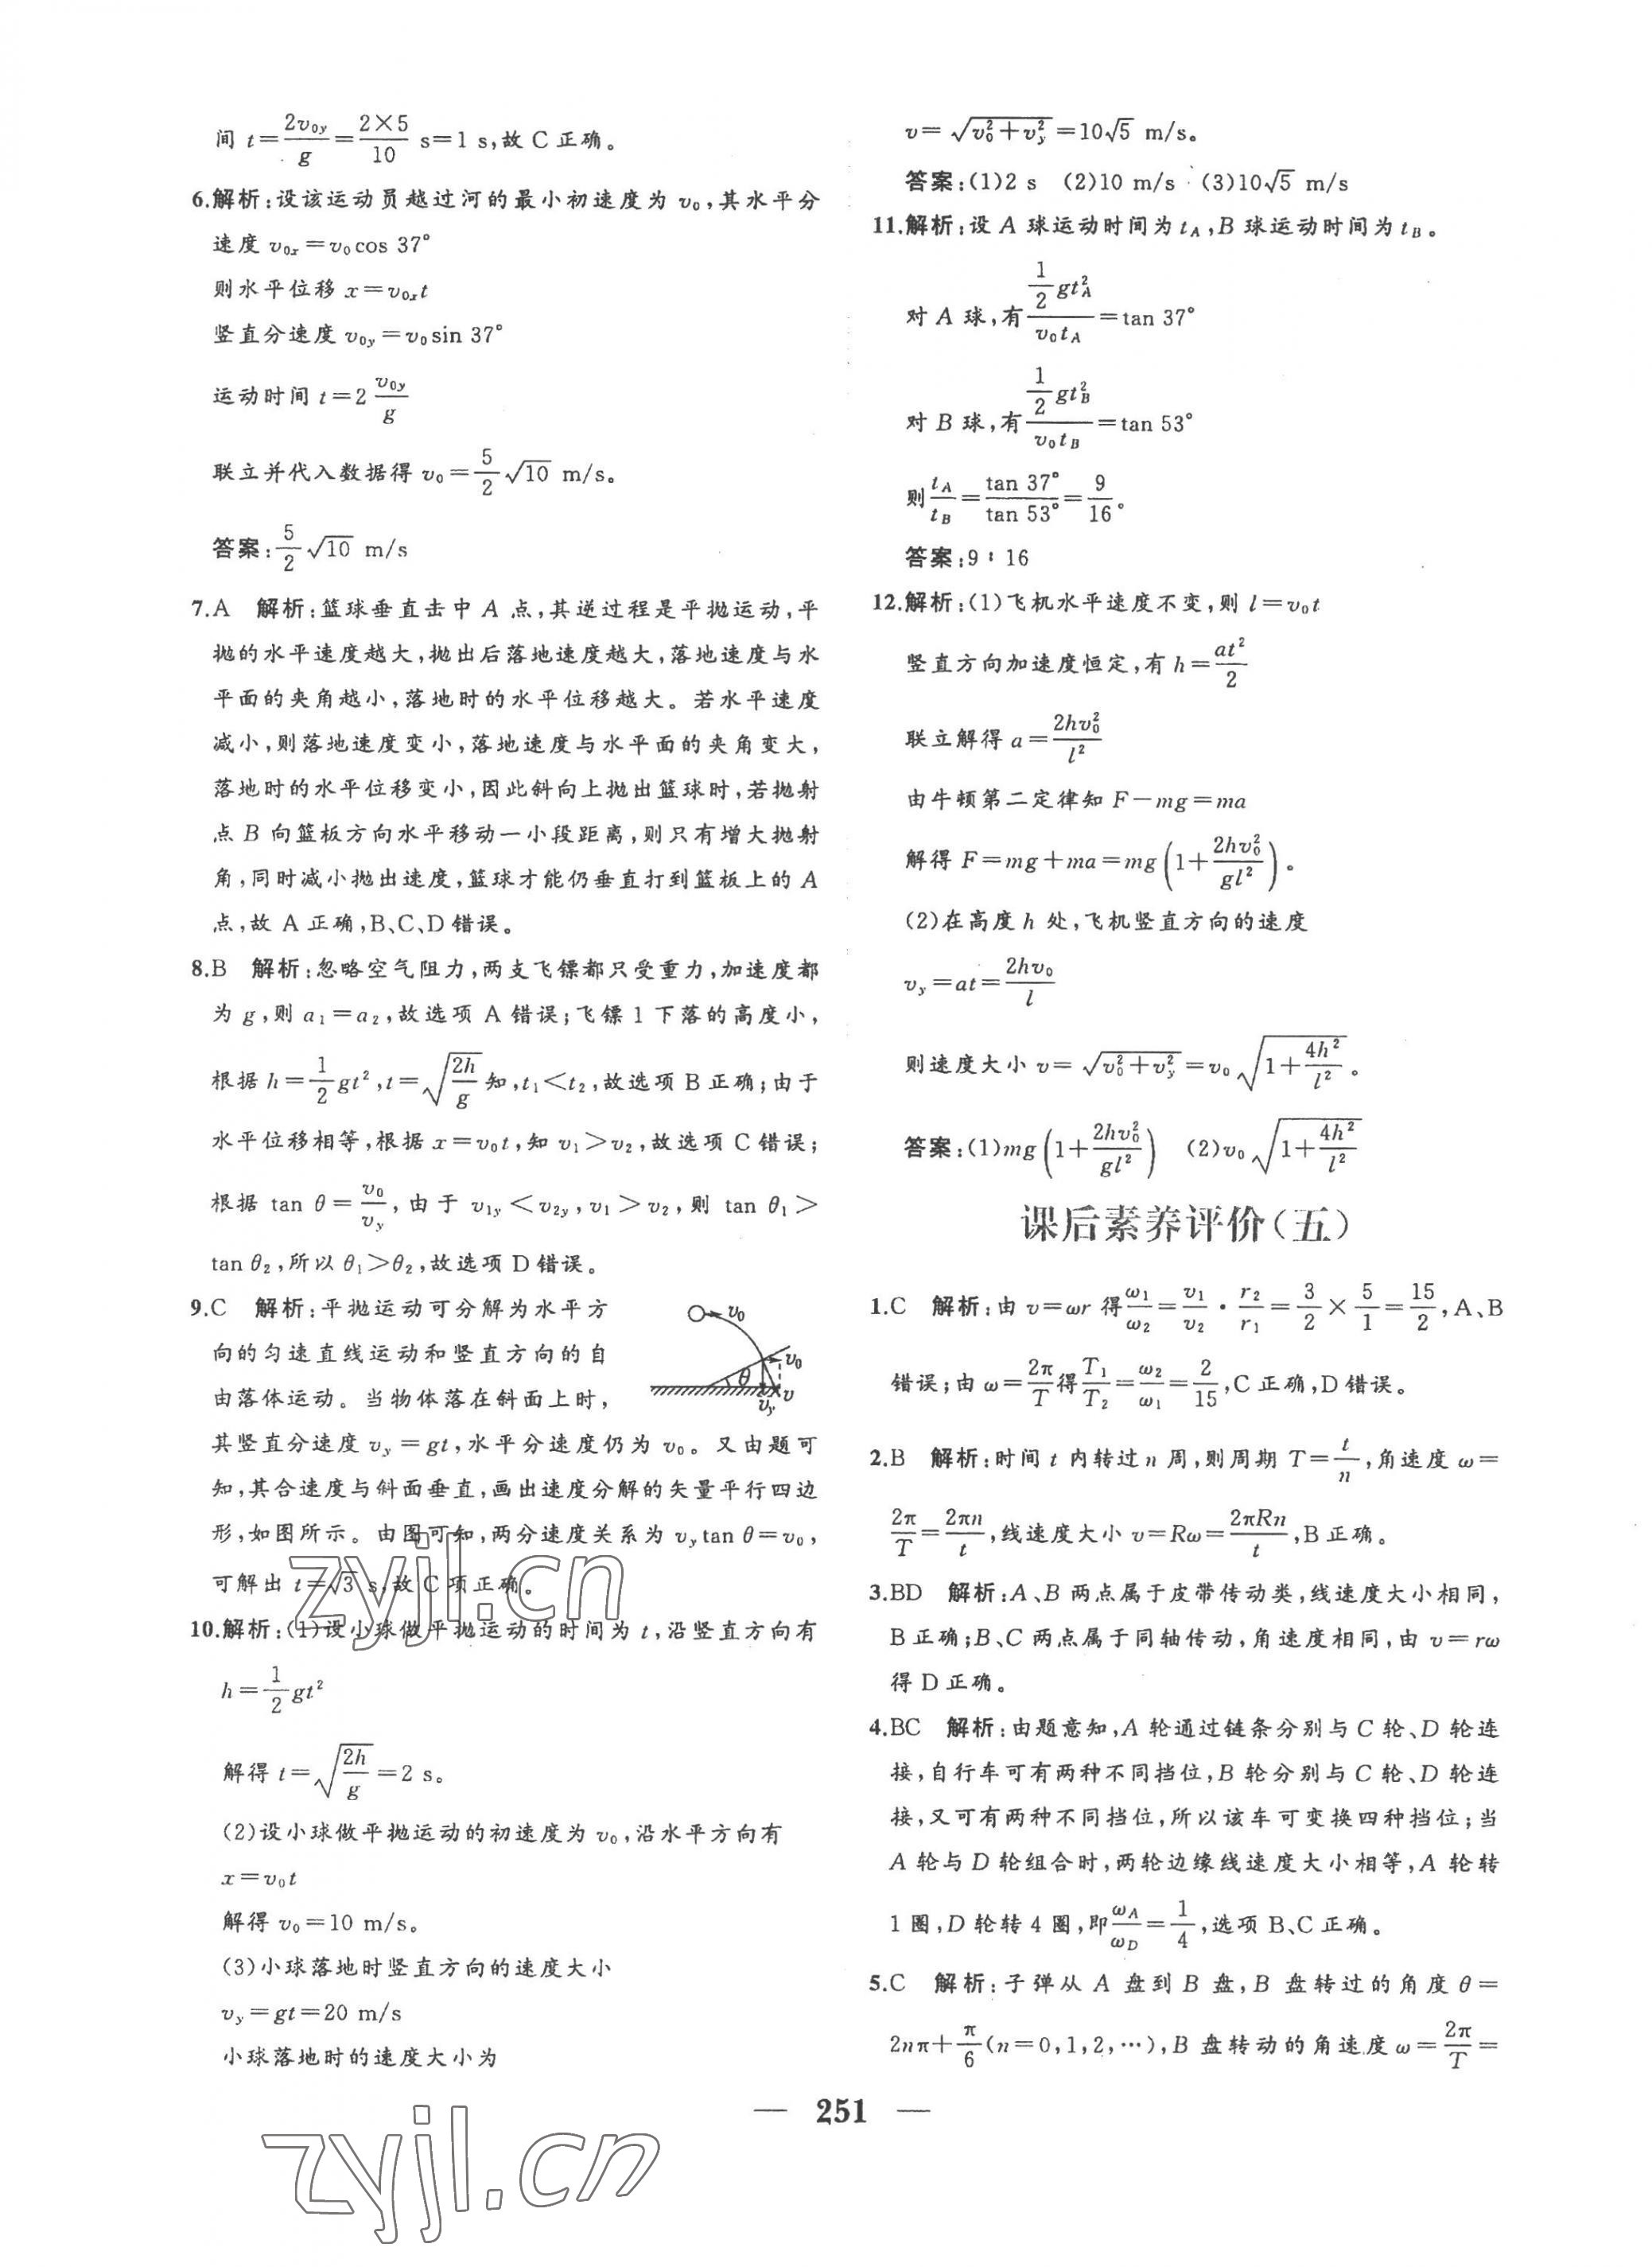 间 t=\frac{2v_{0y}}{g}=\frac{2×5}{10} s=1 s,故 C 正确。
6.解析:设该运动员越过河的最小初速度为 v₀,其水平分
速度 v₀ₓ=v₀cos 37°
则水平位移 x=v₀ₓt
竖直分速度 v_{0y}=v₀sin 37°
运动时间 t=2\frac{v_{0y}}{g}
联立并代入数据得 v₀=\frac{5}{2}\sqrt{10} m/s。
答案:\frac{5}{2}\sqrt{10} m/s
7.A 解析:篮球垂直击中 A 点,其逆过程是平抛运动,平
抛的水平速度越大,抛出后落地速度越大,落地速度与水
平面的夹角越小,落地时的水平位移越大。若水平速度
减小,则落地速度变小,落地速度与水平面的夹角变大,
落地时的水平位移变小,因此斜向上抛出篮球时,若抛射
点 B 向篮板方向水平移动一小段距离,则只有增大抛射
角,同时减小抛出速度,篮球才能仍垂直打到篮板上的 A
点,故 A 正确,B、C、D 错误。
8.B 解析:忽略空气阻力,两支飞镖都只受重力,加速度都
为 g,则 a₁=a₂,故选项 A 错误;飞镖 1 下落的高度小,
根据 h=\frac{1}{2}gt²,t=\sqrt{\frac{2h}{g}}知,t₁<t₂,故选项 B 正确;由于
水平位移相等,根据 x=v₀t,知 v₁>v₂,故选项 C 错误;
根据 tan θ=\frac{v₀}{v_y},由于 v_{1y}<v_{2y},v₁>v₂,则 tan θ₁>
tan θ₂,所以 θ₁>θ₂,故选项 D 错误。
9.C 解析:平抛运动可分解为水平方
向的匀速直线运动和竖直方向的自
由落体运动。当物体落在斜面上时,
v₀
v₀
θ
v
v_y
其竖直分速度 v_y=gt,水平分速度仍为 v₀。又由题可
知,其合速度与斜面垂直,画出速度分解的矢量平行四边
形,如图所示。由图可知,两分速度关系为 v_y tan θ=v₀,
可解出 t=\sqrt{3} s,故 C 项正确。
10.解析:(1)设小球做平抛运动的时间为 t,沿竖直方向有
h=\frac{1}{2}gt²
解得 t=\sqrt{\frac{2h}{g}}=2 s。
(2)设小球做平抛运动的初速度为 v₀,沿水平方向有
x=v₀t
解得 v₀=10 m/s。
(3)小球落地时竖直方向的速度大小
v_y=gt=20 m/s
小球落地时的速度大小为
v=\sqrt{v₀²+v_y²}=10\sqrt{5} m/s。
答案:(1)2 s (2)10 m/s (3)10\sqrt{5} m/s
11.解析:设 A 球运动时间为 t_A,B 球运动时间为 t_B。
对 A 球,有\frac{\frac{1}{2}gt_A²}{v₀t_A}=tan 37°
对 B 球,有\frac{\frac{1}{2}gt_B²}{v₀t_B}=tan 53°
则\frac{t_A}{t_B}=\frac{tan 37°}{tan 53°}=\frac{9}{16}。
答案:9∶16
12.解析:(1)飞机水平速度不变,则 l=v₀t
竖直方向加速度恒定,有 h=\frac{at²}{2}
联立解得 a=\frac{2hv₀²}{l²}
由牛顿第二定律知 F-mg=ma
解得 F=mg+ma=mg(1+\frac{2hv₀²}{gl²})。
(2)在高度 h 处,飞机竖直方向的速度
v_y=at=\frac{2hv₀}{l}
则速度大小 v=\sqrt{v₀²+v_y²}=v₀\sqrt{1+\frac{4h²}{l²}}。
答案:(1)mg(1+\frac{2hv₀²}{gl²}) (2)v₀\sqrt{1+\frac{4h²}{l²}}
课后素养评价(五)
1.C 解析:由 v=ωr 得\frac{ω₁}{ω₂}=\frac{v₁}{v₂}·\frac{r₂}{r₁}=\frac{3}{2}×\frac{5}{1}=\frac{15}{2},A、B
错误;由 ω=\frac{2π}{T}得\frac{T₁}{T₂}=\frac{ω₂}{ω₁}=\frac{2}{15},C 正确,D 错误。
2.B 解析:时间 t 内转过 n 周,则周期 T=\frac{t}{n},角速度 ω=
\frac{2π}{T}=\frac{2πn}{t},线速度大小 v=Rω=\frac{2πRn}{t},B 正确。
3.BD 解析:A、B 两点属于皮带传动类,线速度大小相同,
B 正确;B、C 两点属于同轴传动,角速度相同,由 v=rω
得 D 正确。
4.BC 解析:由题意知,A 轮通过链条分别与 C 轮、D 轮连
接,自行车可有两种不同挡位,B 轮分别与 C 轮、D 轮连
接,又可有两种不同挡位,所以该车可变换四种挡位;当
A 轮与 D 轮组合时,两轮边缘线速度大小相等,A 轮转
1 圈,D 轮转 4 圈,即\frac{ω_A}{ω_D}=\frac{1}{4},选项 B、C 正确。
5.C 解析:子弹从 A 盘到 B 盘,B 盘转过的角度 θ=
2nπ+\frac{π}{6}(n=0,1,2,…),B 盘转动的角速度 ω=\frac{2π}{T}=
— 251 —
zyjl.cn
zyjl.cn